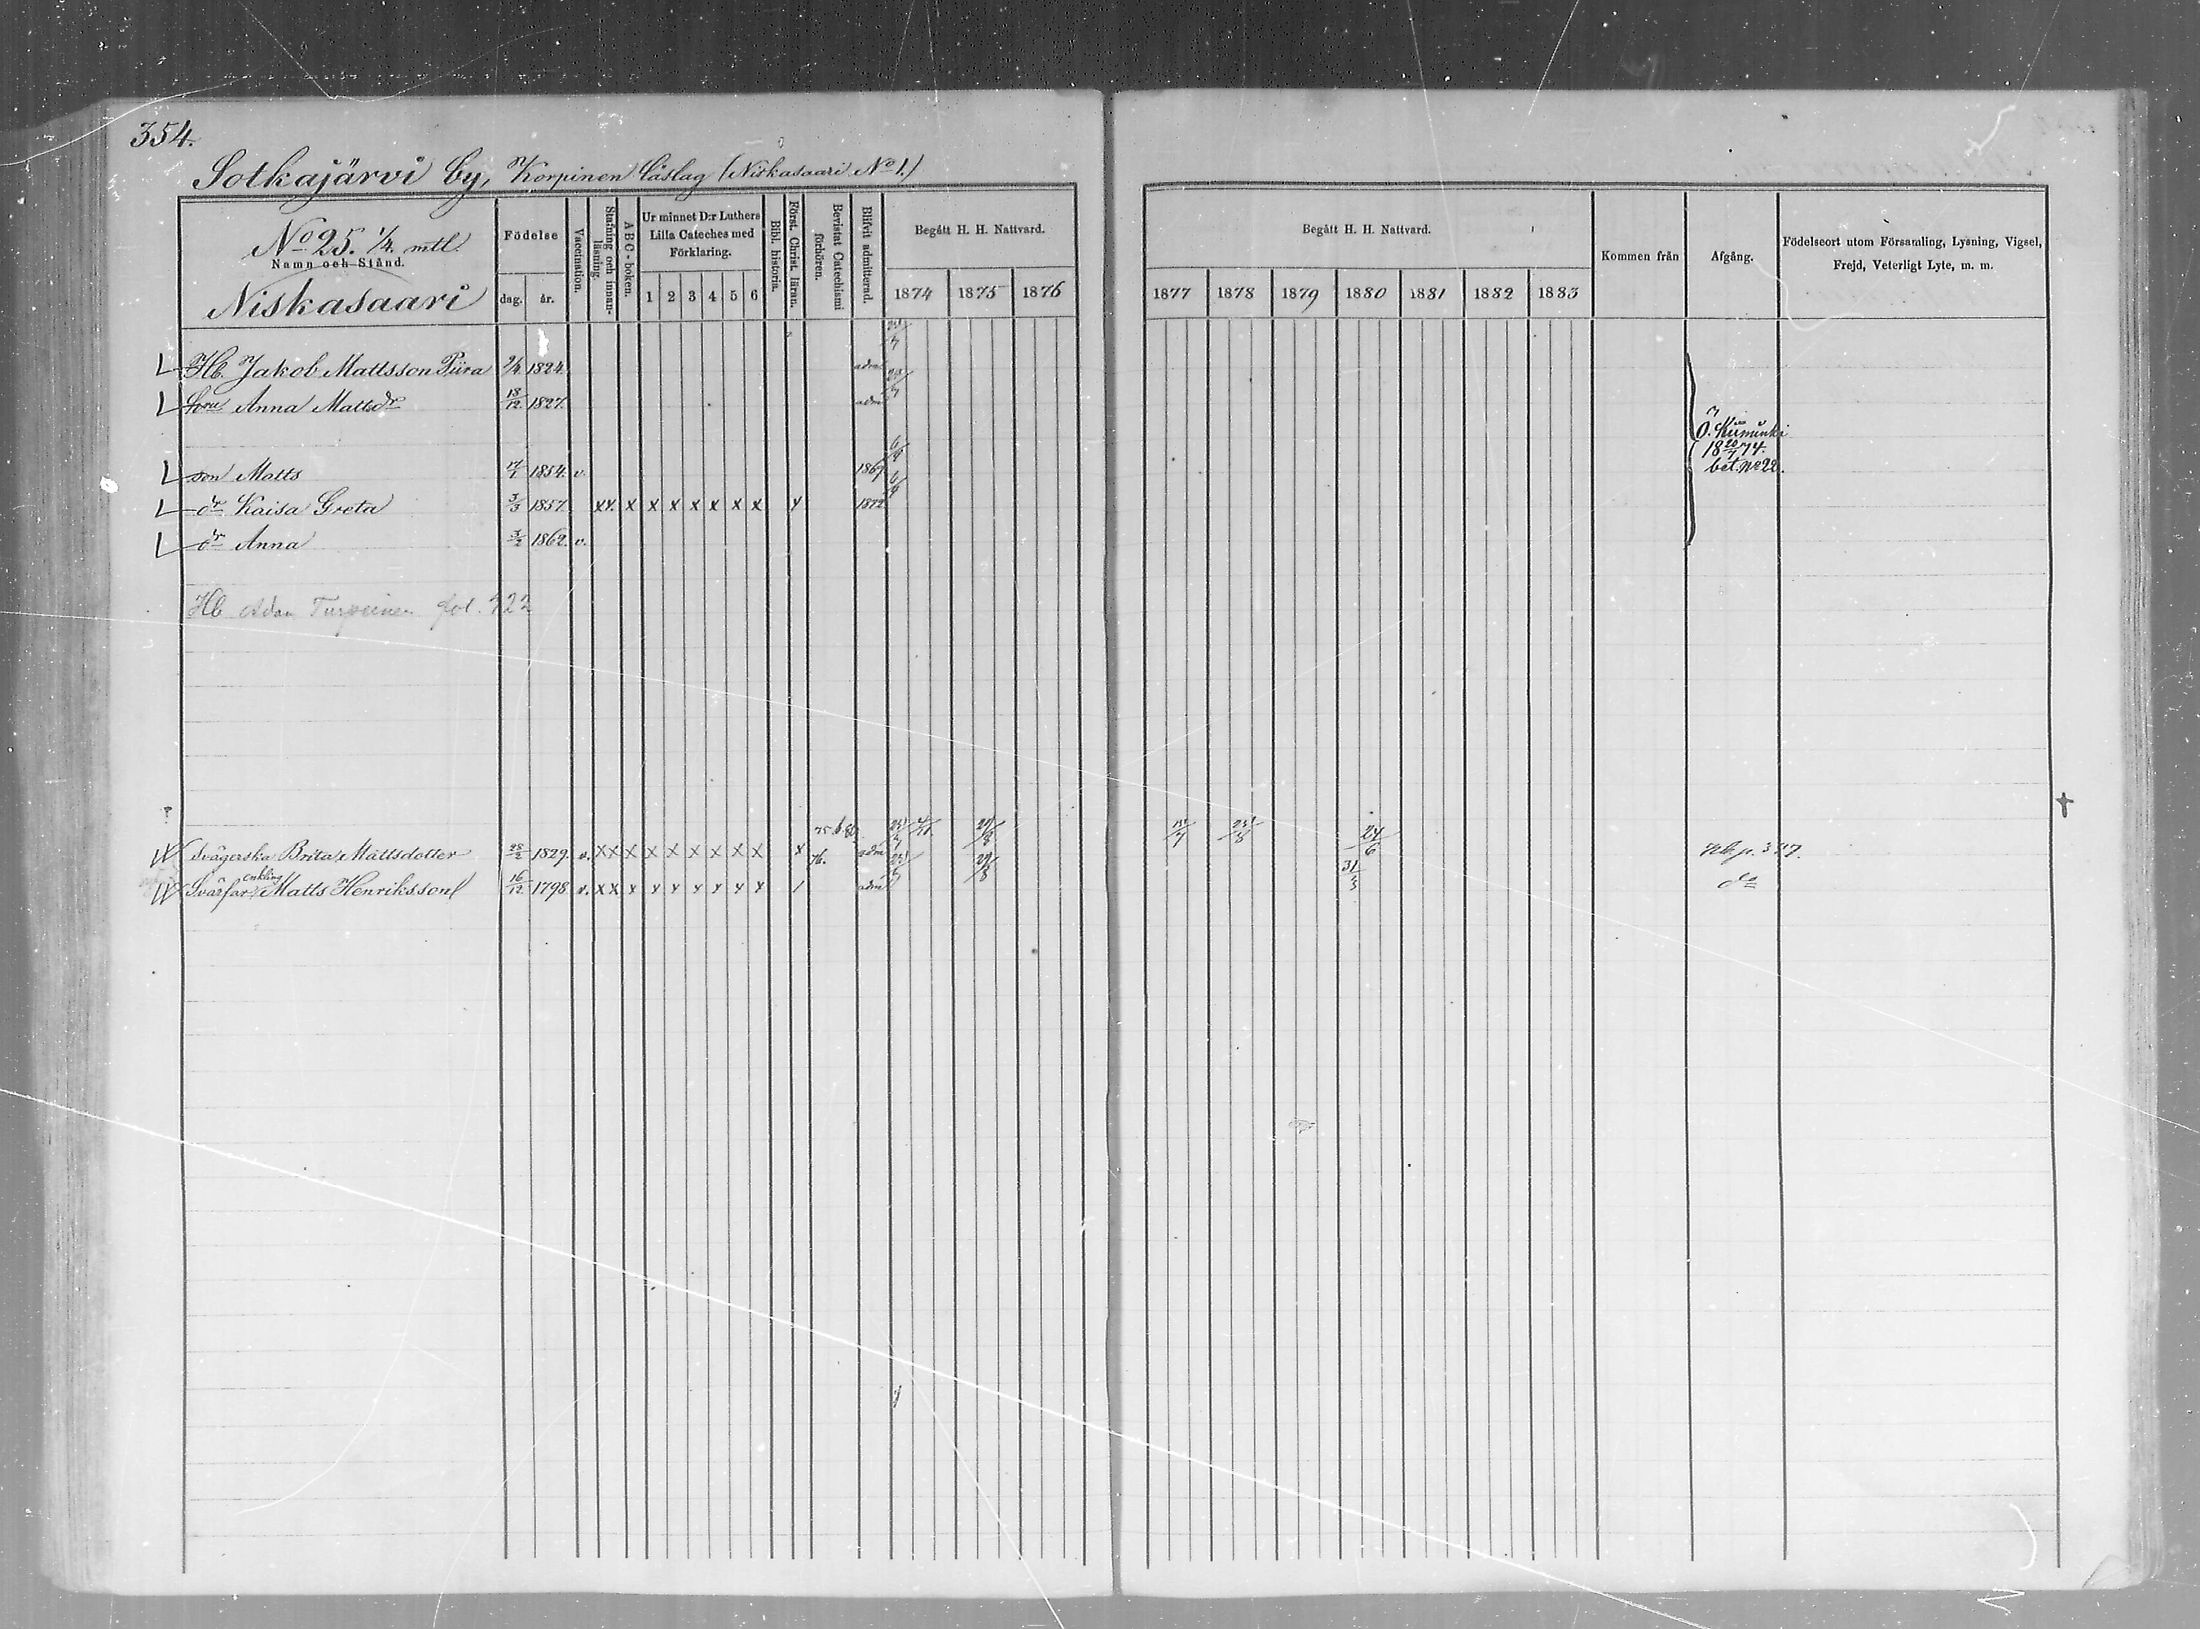 354.
Sotkajärvi by, Korpinen läslag (Niskasaari No 1.)
No 25. 1/4. mtl.
Namn och Stånd.
Niskasaari
Födelse
dag. år.
Vaccination.
Stafning och innanläsning.
A B C - boken.
Ur minnet D:r Luthers
Lilla Cateches med
Förklaring.
1 2 3 4 5 6
Bibl. historia.
Först. Christ. läran.
Bevistat Catechismi förhören.
Blifvit admitterad.
Begått H. H. Nattvard.
1874 1875 1876
Begått H. H. Nattvard.
1877 1878 1879 1880 1881 1882 1883
Kommen från
Afgång.
Födelseort utom Församling, Lysning, Vigsel,
Frejd, Veterligt Lyte, m. m.
Hb. Jakob Mattsson Piira 1824. adm
Anna Mattsdr 18/12 1827. adm
Ö. Kiiminki
18 20/7 74.
bet. No 22.
son Matts 1854. v. 1869 6/4
dr Kaisa Greta 3/3 1857. xx. x x x x x x x x 1872 6/4
dr Anna 3/2 1862. v.
Hb Adam Turpeinen fol. 322
Svägerska Brita Mattsdotter 28/2 1829. v. x x x x x x x x x x adm 29/8 25/8 24/6
enkling
Svärfar, Matts Henriksson 16/12 1798 v. x x x x x x x x x adm 29/8 31/3 do